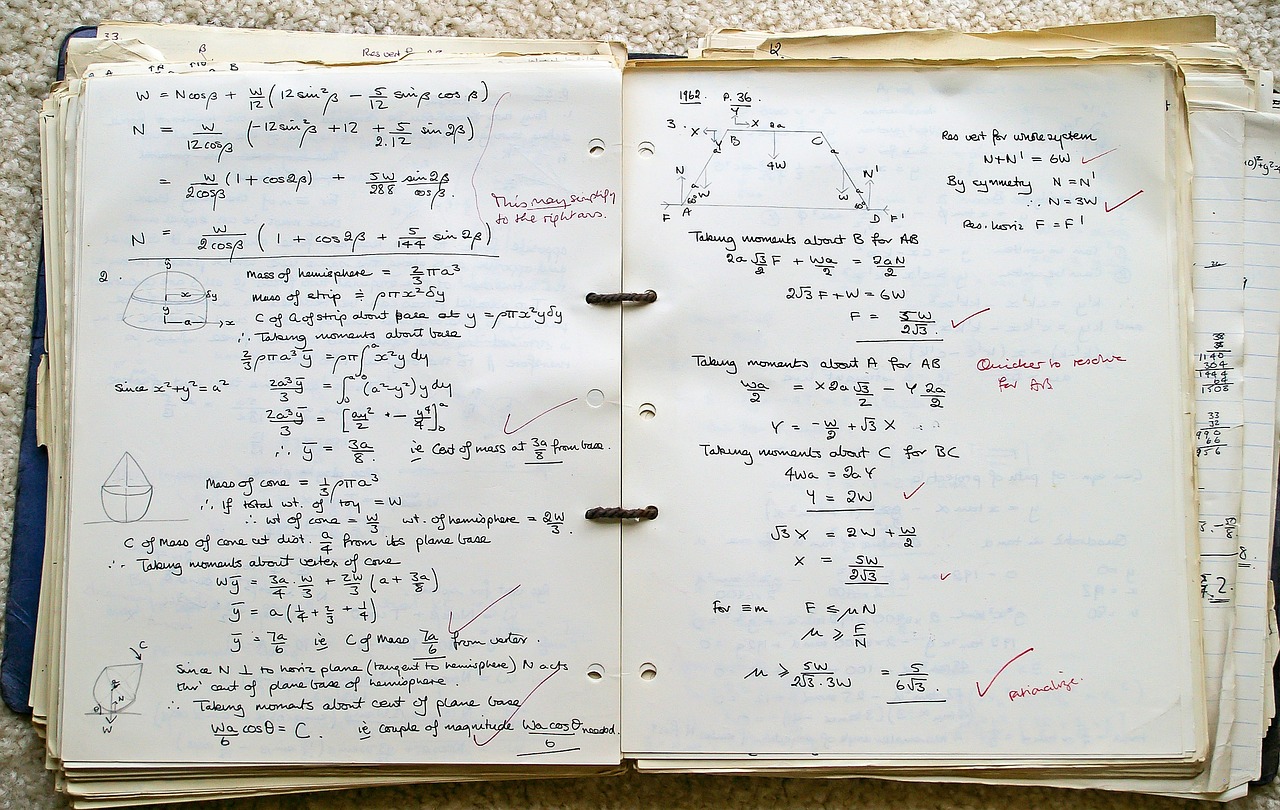 33.
β
Res vert
B
W = Ncosβ + W/12 (12sin²β − 5/12 sinβ cosβ)
N = W/12cosβ (−12sin²β + 12 + 5/2.12 sin2β)
= W/2cosβ (1 + cos2β) + 5W/288 sin2β/cosβ.
This may simplify
to the right ans.
N = W/2cosβ (1 + cos2β + 5/144 sin2β)
2.
y
x δy
y
a x
Mass of hemisphere = 2/3 πa³
Mass of strip ≑ ρπx²δy
C of G of strip about base at y = ρπx²yδy
∴ Taking moments about base
2/3 ρπa³ȳ = ρπ∫₀ᵃ x²y dy
Since x²+y²=a² 2a³ȳ/3 = ∫₀ᵃ (a²−y²)y dy
2a³ȳ/3 = [ay²/2 − y⁴/4]₀ᵃ
∴ ȳ = 3a/8 ie Cent of mass at 3a/8 from base.
Mass of cone = 1/3 ρπa³
∴ If total wt. of toy = W
∴ wt of cone = W/3 wt. of hemisphere = 2W/3.
C of Mass of cone at dist. a/4 from its plane base
∴ Taking moments about vertex of cone
Wȳ = 3a/4 . W/3 + 2W/3 (a + 3a/8)
ȳ = a(1/4 + 2/3 + 1/4)
ȳ = 7a/6 ie C of Mass 7a/6 from vertex.
C
θ
N
W
Since N ⊥ to horiz plane (tangent to hemisphere) N acts
thro' cent of plane base of hemisphere.
∴ Taking moments about cent of plane base
Wa/6 cosθ = C. ie couple of magnitude Wa cosθ/6 needed.
12.
1962. P. 36.
3.
Y
X X 2a
Y B C
a a
4W
N N'
a a
W W
60° 60°
F A D F'
Res vert for whole system
N+N' = 6W
By symmetry N = N'
∴ N = 3W
Res. horiz F = F'
Taking moments about B for AB
2a √3/2 F + Wa/2 = 2aN/2
2√3 F + W = 6W
F = 5W/2√3.
Taking moments about A for AB
Quicker to resolve
for AB
Wa/2 = X 2a √3/2 − Y 2a/2
Y = −W/2 + √3 X
Taking moments about C for BC
4Wa = 2aY
Y = 2W
√3 X = 2W + W/2
X = 5W/2√3
For ≡m F ≤ μN
μ ≥ F/N
μ ≥ 5W/2√3.3W = 5/6√3.
rationalize.
38
38
1140
304
1444
64
1508
33
32
990
66
956